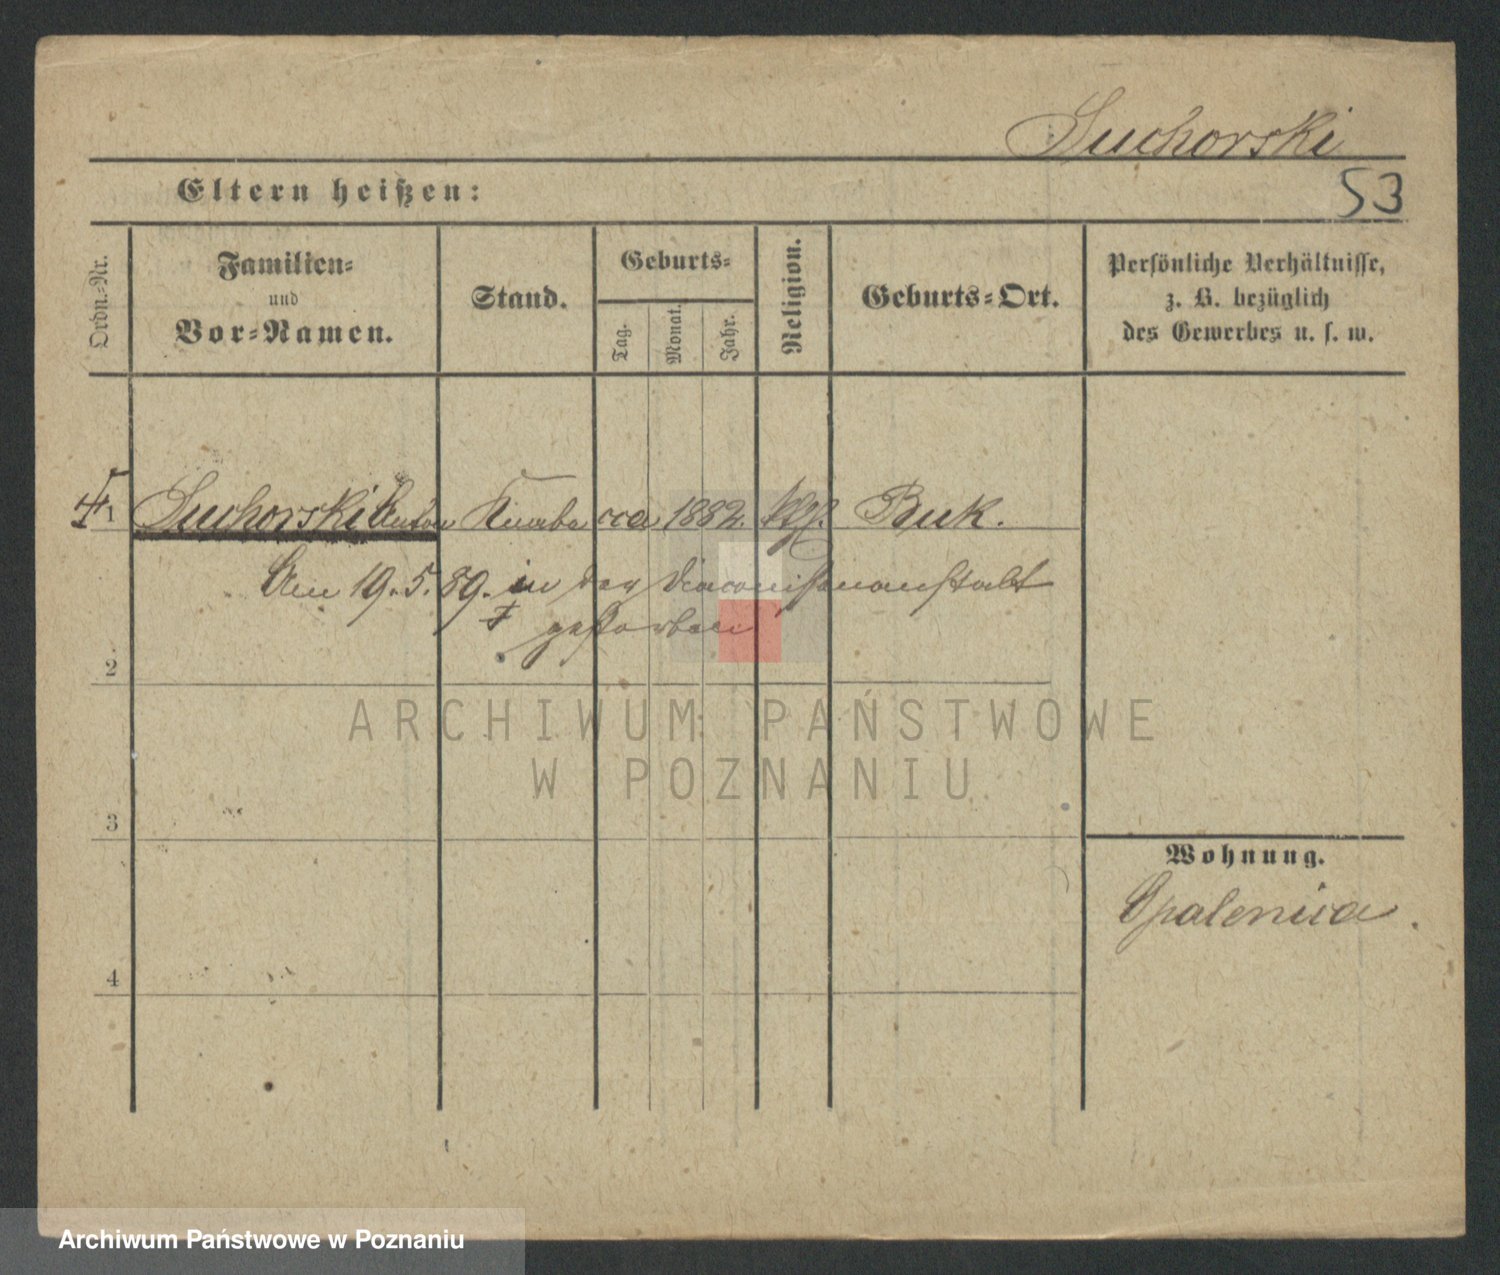 Suchorski
53
Eltern heißen:
Ordn.-Nr.
Familien-
und
Vor-Namen.
Stand.
Geburts-
Tag.
Monat.
Jahr.
Religion.
Geburts-Ort.
Persönliche Verhältnisse,
z. B. bezüglich
des Gewerbes u. s. w.
1 Suchorski Anton Knabe cca 1882. kth. Buk.
Am 19.5.89. in der Diaconissenanstalt
gestorben
2
ARCHIWUM PAŃSTWOWE
W POZNANIU
3
Wohnung.
Opalenica.
4
Archiwum Państwowe w Poznaniu